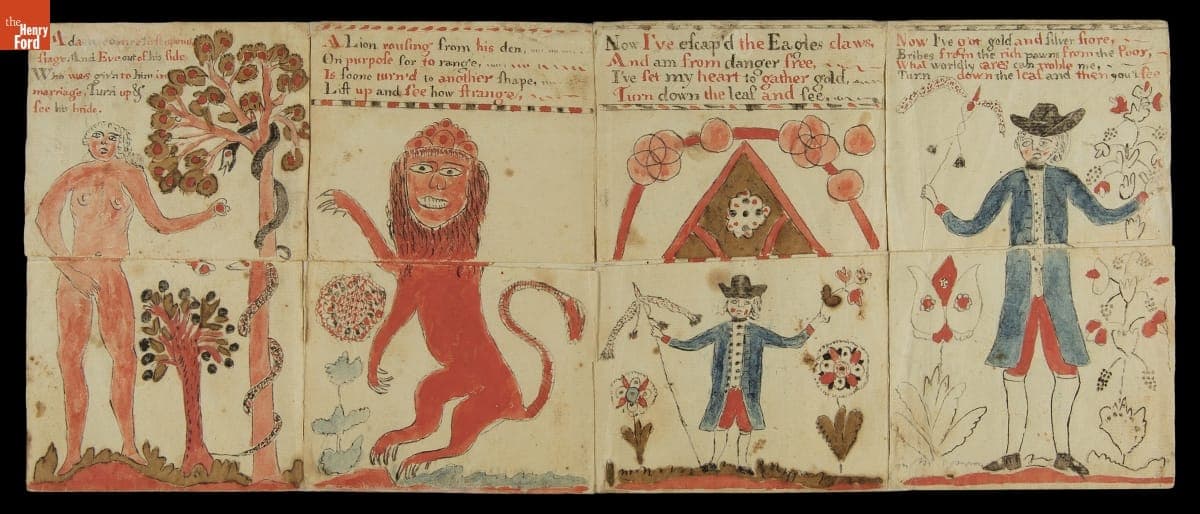 the
Henry
Ford
Adam
stage, And Eve out of his side,
Who was givn to him in
marriage, Turn up &
see his bride.
A Lion rousing from his den,
On purpose for to range,
Is soone turn'd to another shape,
Lift up and see how strange,
Now I've escap'd the Eagles claws,
And am from danger free,
I've set my heart to gather gold,
Turn down the leaf and see,
Now I've got gold and silver store,
Bribes from the rich pawns from the Poor,
What worldly cares can me,
Turn down the leaf and then you'll see